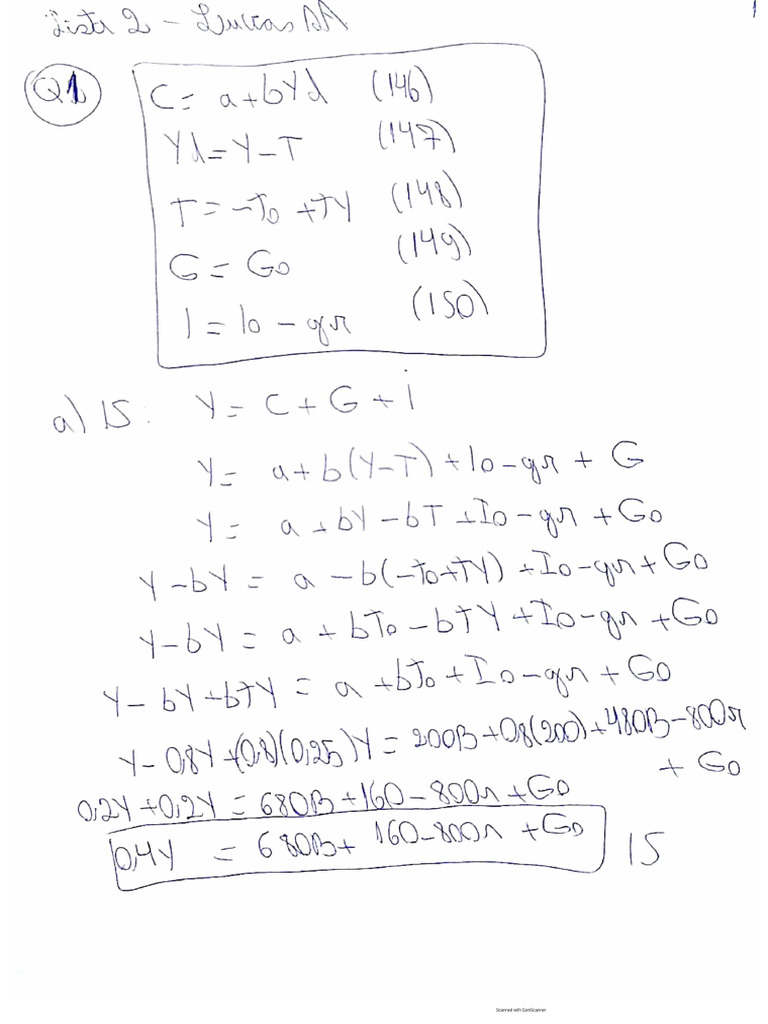 Lista 2 - Luccas DA
1
Q1
C = a + bYd (146)
Yd = Y - T (147)
T = -To + TY (148)
G = Go (149)
I = Io - qr (150)
a) IS: Y = C + G + i
Y = a + b(Y-T) + Io - qr + G
Y = a + bY - bT + Io - qr + Go
Y - bY = a - b(-To+TY) + Io - qr + Go
Y - bY = a + bTo - bTY + Io - qr + Go
Y - bY + bTY = a + bTo + Io - qr + Go
Y - 0,8Y + (0,8)(0,25)Y = 200B + 0,8(200) + 480B - 800r
+ Go
0,2Y + 0,2Y = 680B + 160 - 800r + Go
0,4Y = 680B + 160 - 800r + Go IS
Scanned with CamScanner